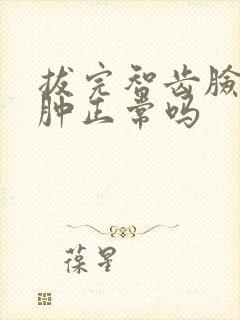 拔完智齿臉
肿正常吗
葆星